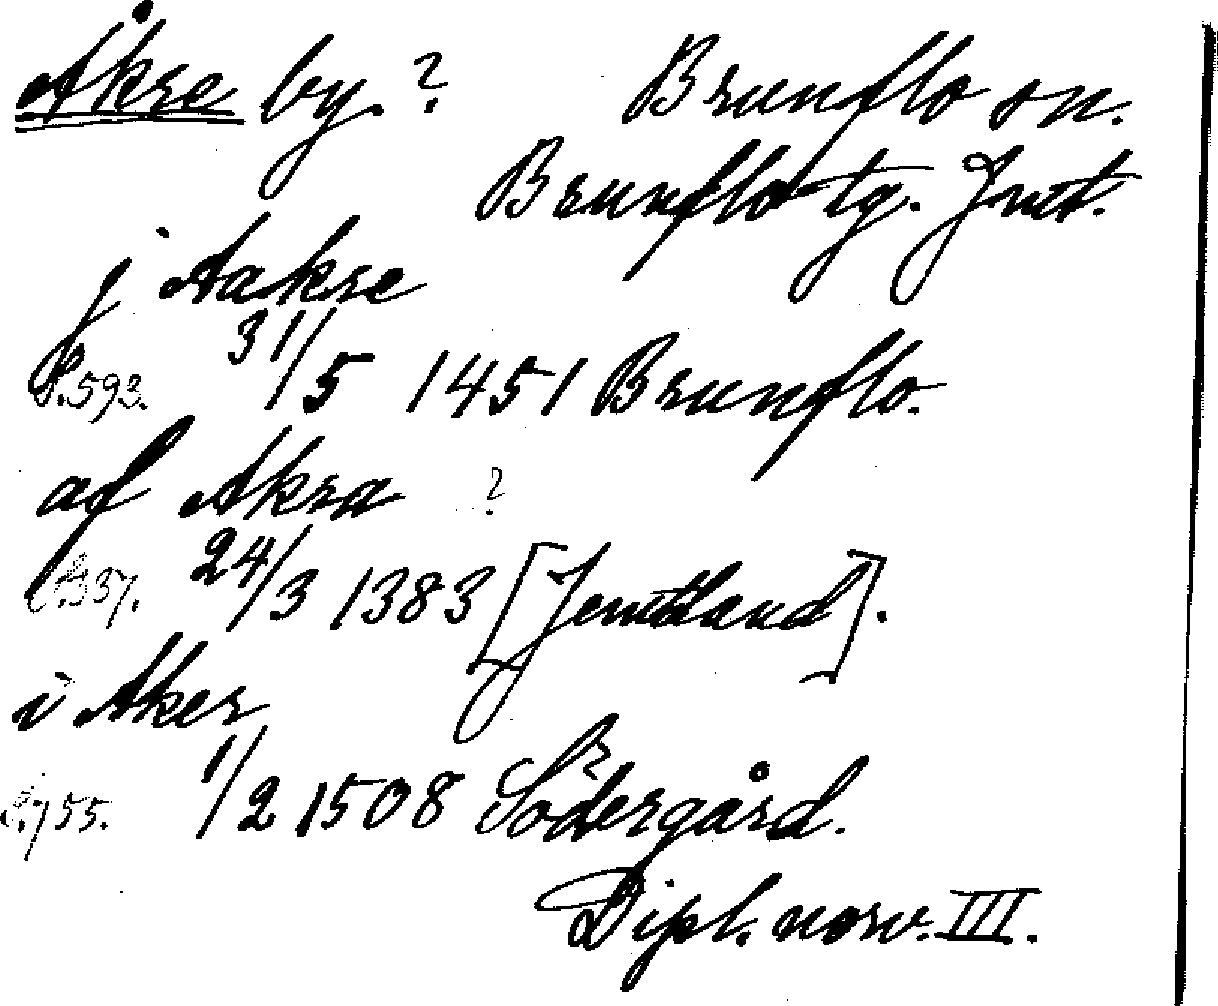 Åkre by. ? Brunflo sn.
Brunflo tg. Jmt.
j Aakre
S. 593. 31/5 1451 Brunflo.
af Akra ?
S. 337. 24/3 1383 [Jemtland].
i Aker
S. 755. 1/2 1508 Södergård.
Dipl. norv. III.